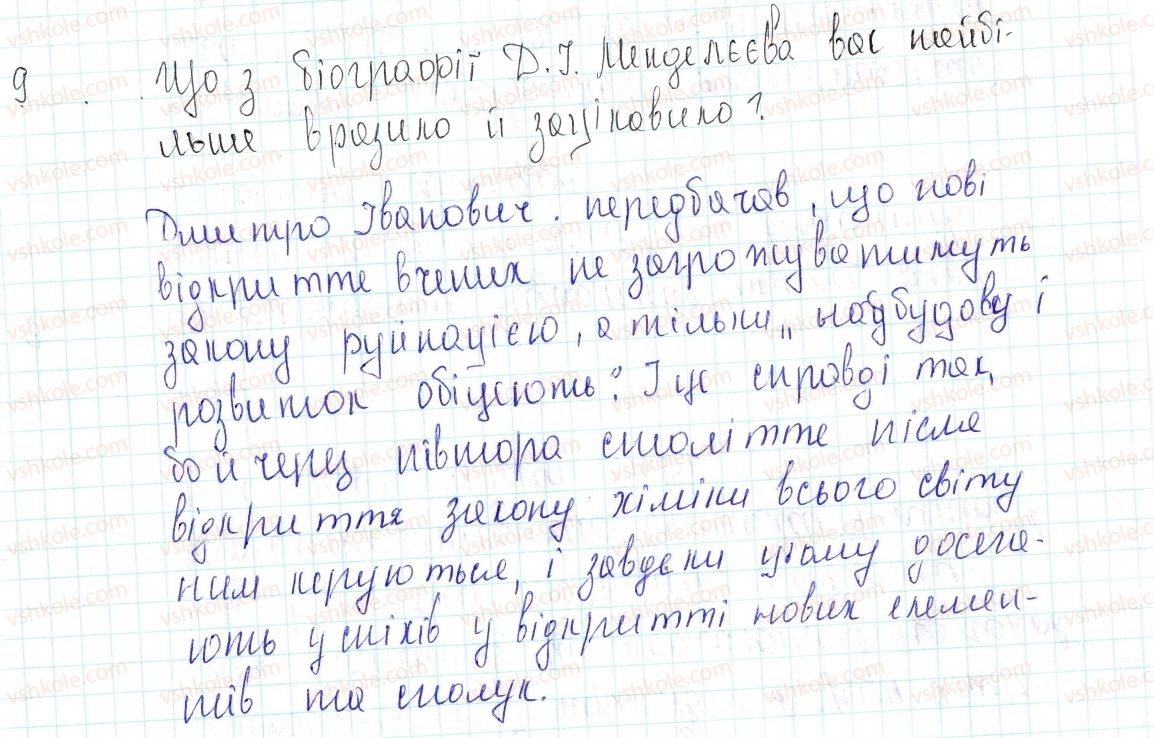 9 Що з біографії Д.І. Менделєєва вас найбі-
льше вразило й зацікавило?
Дмитро Іванович передбачав, що нові
відкриття вчених не загрожуватимуть
закону руйнацією, а тільки „надбудову і
розвиток обіцяють". І це справді так,
бо й через півтора століття після
відкриття закону хіміки всього світу
ним керуються, і завдяки цьому досяга-
ють успіхів у відкритті нових елемен-
тів та сполук.